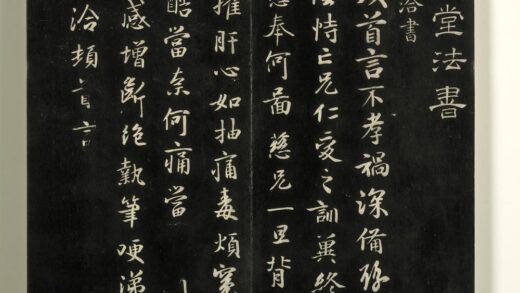 堂法書
洽書
首言不孝禍深備
恃亡兄仁愛之訓冀終
奉何圖慈兄一旦背
摧肝心如抽痛毒煩冤
酷當奈何痛當
感增斷絕執筆哽涕
洽頓首言